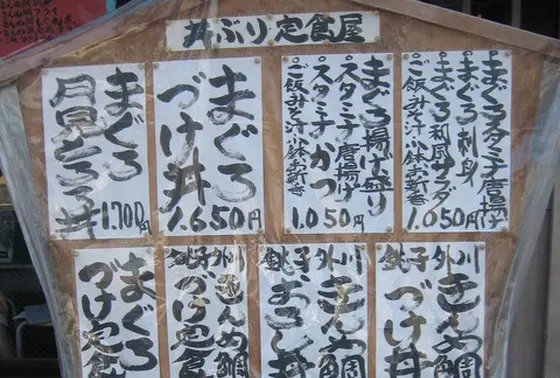 丼ぶり定食屋
まぐろスタミナ唐揚げ
まぐろ刺身
まぐろ和風サラダ
ご飯みそ汁小鉢お新香
1.050円
まぐろ揚げ盛り
スタミナ唐揚げ
スタミナかつ
ご飯みそ汁小鉢お新香
1.050円
まぐろ
づけ丼
1.650円
まぐろ
月見とろろ丼
1.700円
銚子外川
きんめ鯛
づけ丼
銚子外川
きんめ鯛
銚子外川
きんめ鯛
づけ定食
まぐろ
づけ定食